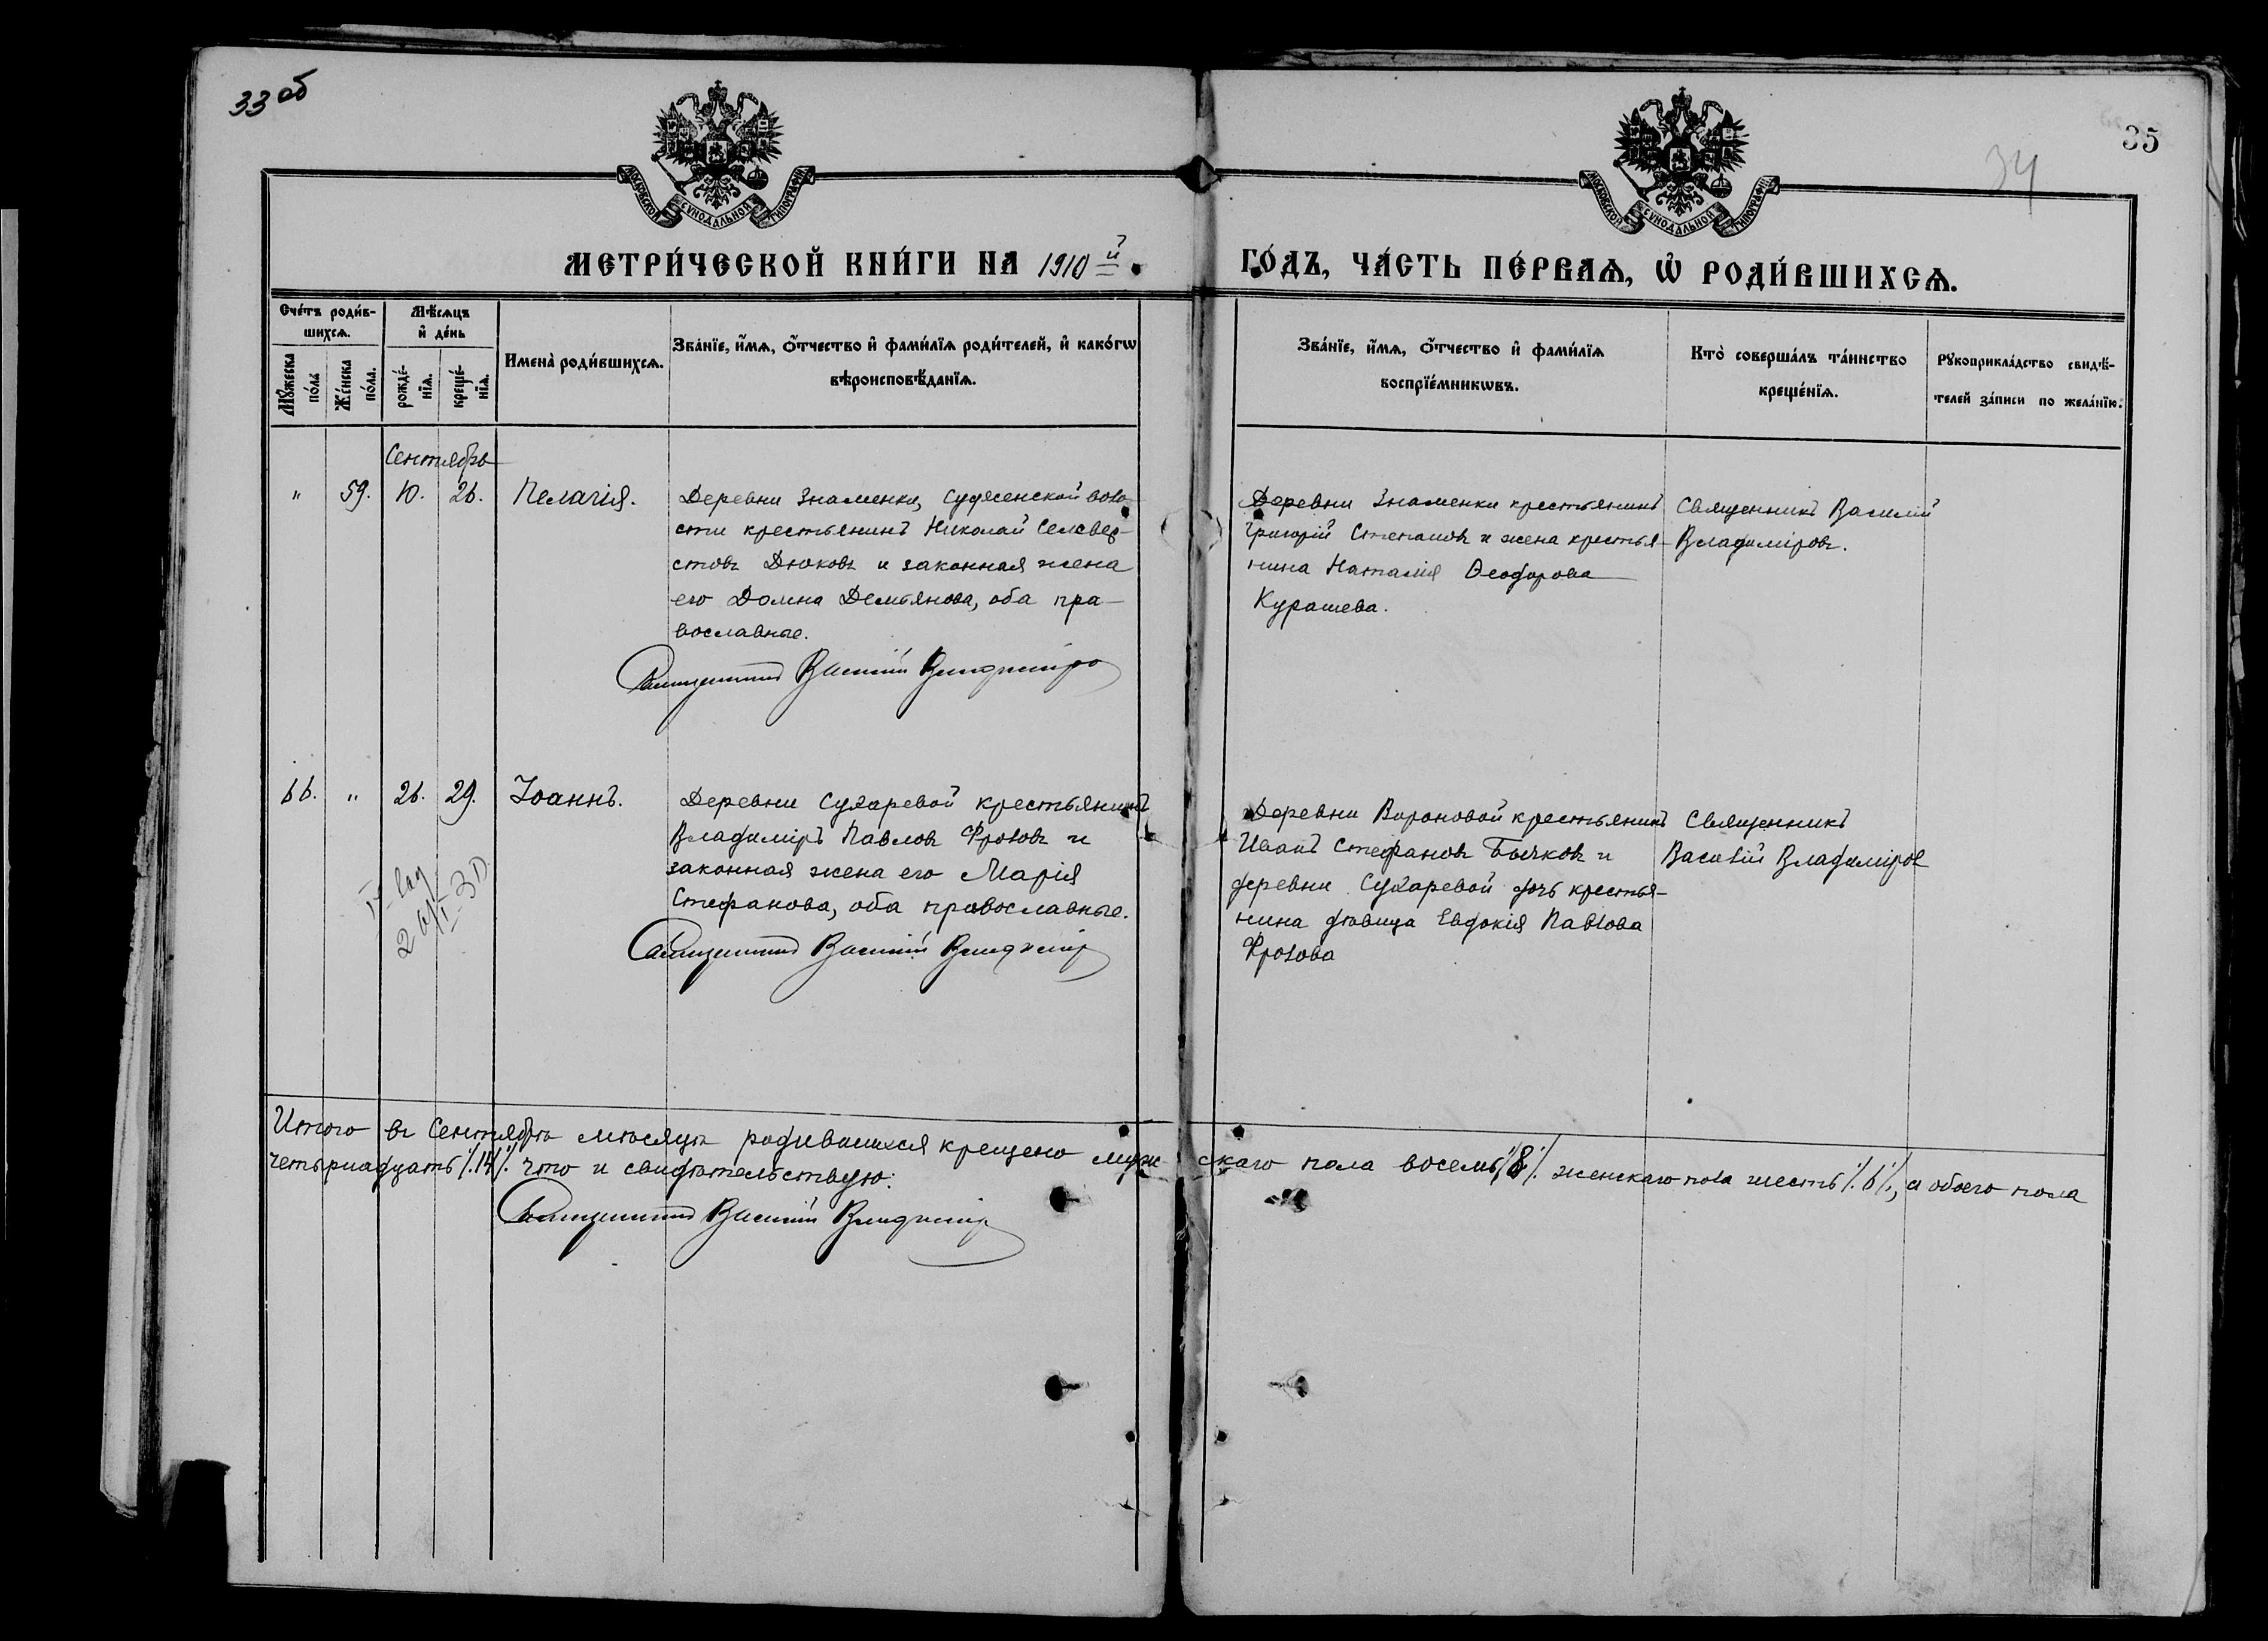 33 об
35
34
МОСКОВСКОЙ СѴНОДАЛЬНОЙ ТИПОГРАФІИ
МОСКОВСКОЙ СѴНОДАЛЬНОЙ ТИПОГРАФІИ
МЕТРИ́ЧЕСКОЙ КНИ́ГИ НА 1910 й
ГО́ДЪ, ЧА́СТЬ ПЕ́РВАѦ, Ѡ҆ РОДИ́ВШИХСѦ.
Сче́тъ роди́в-
шихсѧ.
Мꙋ́жеска
по́ла
Же́нска
по́ла.
Мѣ́сѧцъ
и҆ де́нь
рожде́-
нїѧ.
креще́-
нїѧ.
Имена̀ роди́вшихсѧ.
Зва́нїе, и҆́мѧ, ѻ҆́тчество и҆ фами́лїѧ роди́телей, и҆ како́гѡ
вѣроисповѣ́данїѧ.
Зва́нїе, и҆́мѧ, ѻ҆́тчество и҆ фами́лїѧ
воспрїе́мникѡвъ.
Кто̀ соверша́лъ та́инство
креще́нїѧ.
Рꙋкоприкла́дство свидѣ́-
телей за́писи по жела́нїю.
Сентябрь
" 59. 10. 26. Пелагія.
Деревни Знаменки, Судженской воло-
сти крестьянинъ Николай Селевер-
стовъ Дюковъ и законная жена
его Домна Демьянова, оба пра-
вославные.
Священникъ Василій Владиміро
Деревни Знаменки крестьянинъ
Григорій Степановъ и жена крестья-
нина Наталія Ѳеодорова
Курашева.
Священникъ Василій
Владиміровъ.
66. " 26. 29. Іоаннъ.
Деревни Сухаревой крестьянинъ
Владиміръ Павловъ Фроловъ и
законная жена его Марія
Стефанова, оба православные.
Священникъ Василій Владимір
Деревни Вороновой крестьянинъ
Иванъ Стефановъ Бычковъ и
деревни Сухаревой дочь крестья-
нина дѣвица Евдокія Павлова
Фролова
Священникъ
Василій Владиміров
30
Итого въ Сентябрѣ мѣсяцѣ родившихся крещено муж- скаго пола восемь /8/. женскаго пола шесть /.6/., а обоего пола
четырнадцать /.14/. что и свидѣтельствую:
Священникъ Василій Владимір